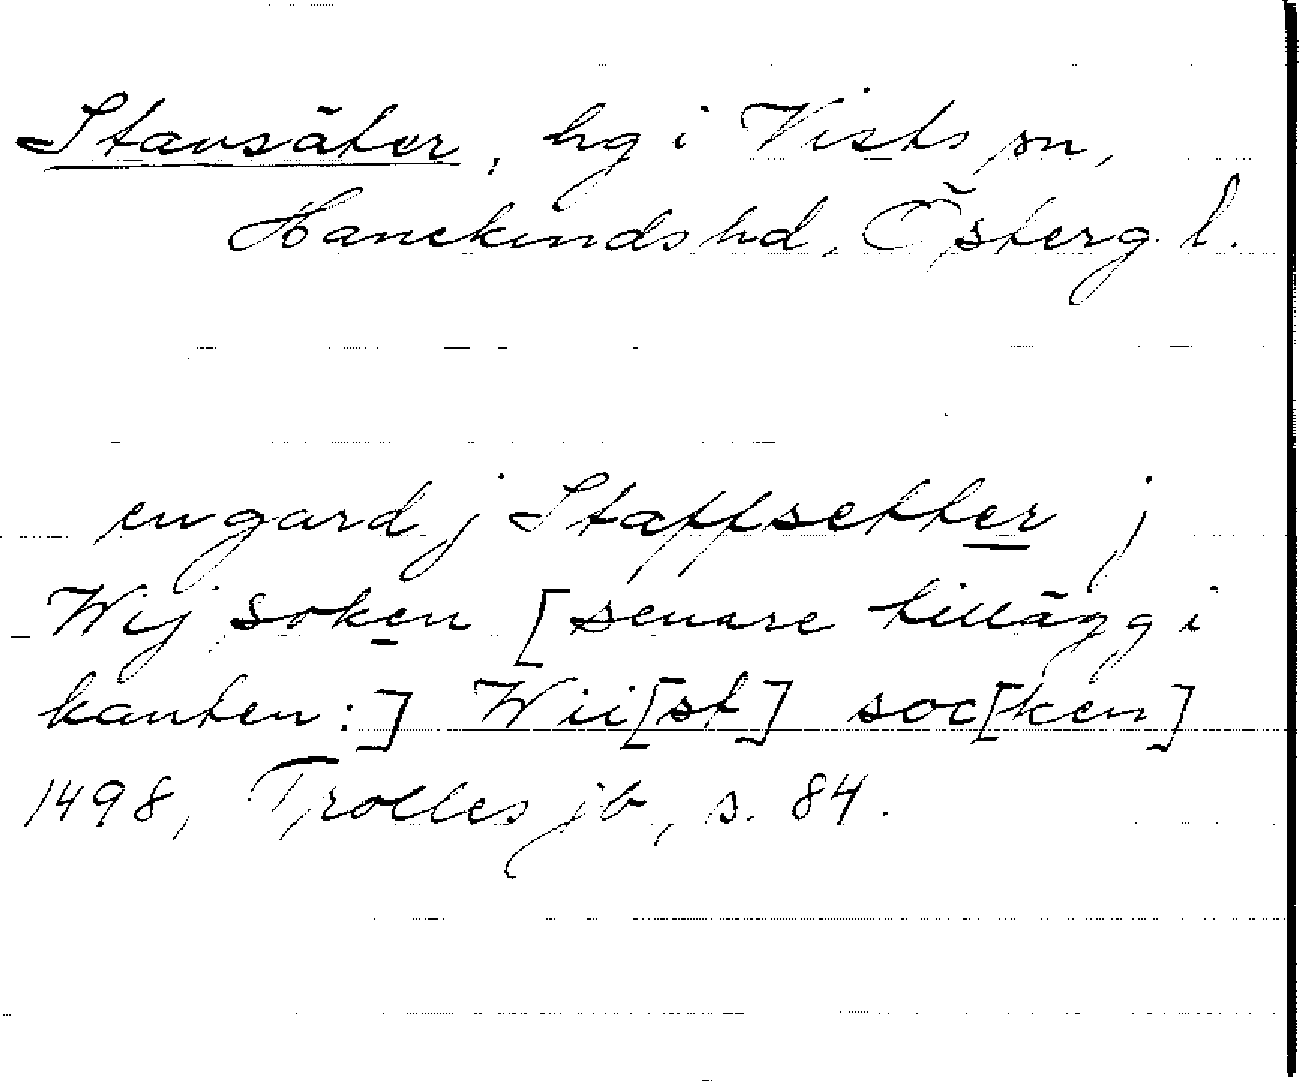 Stavsäter, hg i Vists sn,
Hanekinds hd, Österg. l.
en gard j Staffsetter j
Wij soken [senare tillägg i
kanten:] Wii[st] soc[ken]
1498, Trolles jb, s. 84.